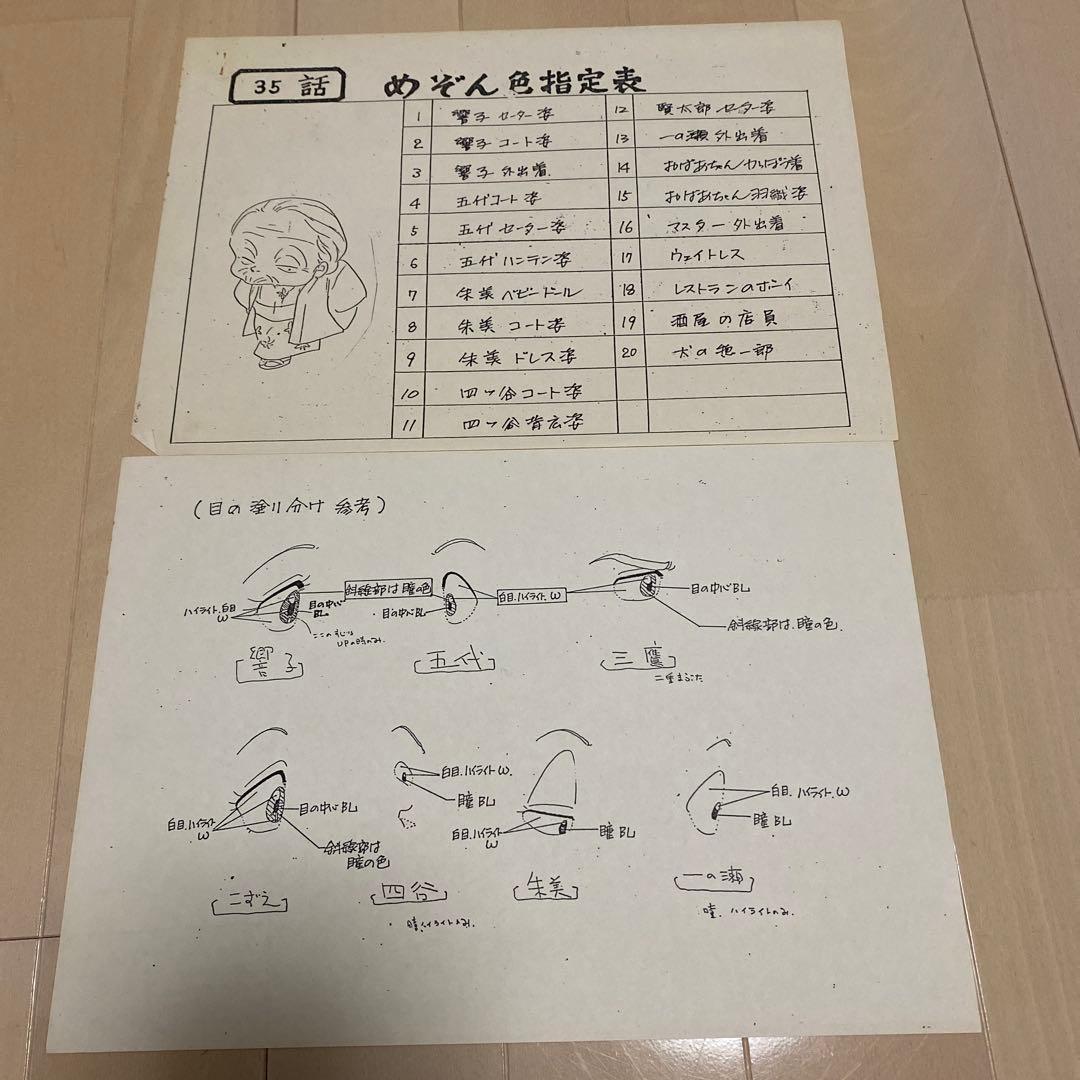 35 話
めぞん色指定表
1 響子 セーター姿
2 響子 コート姿
3 響子 外出着
4 五代コート姿
5 五代 セーター姿
6 五代ハンテン姿
7 朱美 ベビードール
8 朱美 コート姿
9 朱美 ドレス姿
10 四ッ谷コート姿
11 四ッ谷背広姿
12 賢太郎セーター姿
13 一の瀬外出着
14 おばあちゃんかっぽう着
15 おばあちゃん羽織姿
16 マスター外出着
17 ウェイトレス
18 レストランのボーイ
19 酒屋の店員
20 犬の惣一郎
(目の塗り分け 参考)
斜線部は瞳の色
ハイライト.白目
W
目の中心
BL
ここのすじは
UPの時のみ.
響子
目の中心BL
白目.ハイライト.W
五代
目の中心BL
斜線部は.瞳の色.
三鷹
二重まぶた
白目.ハイライト
W
目の中心BL
斜線部は
瞳の色
こずえ
白目.ハイライトW.
瞳BL
四谷
瞳ハイライトのみ.
白目.ハイライト
W
瞳BL
朱美
白目.ハイライト.W
瞳BL
一の瀬
瞳.ハイライトのみ.